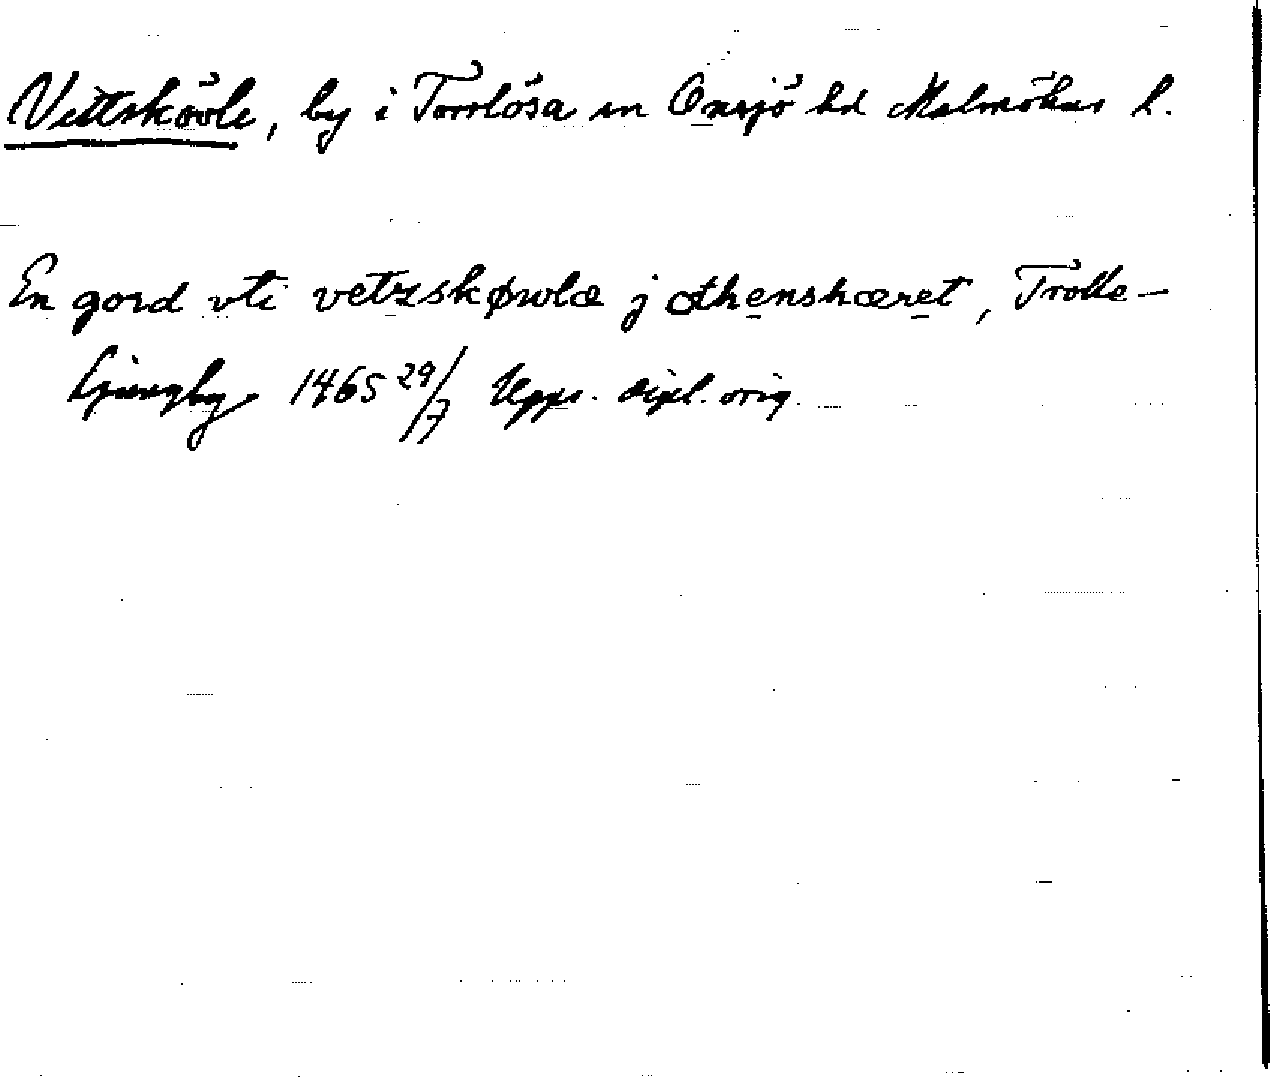 Vittskövle, by i Torrlösa sn Onsjö hd Malmöhus l.
En gord vti vetzskøwlæ j othenshæret, Trolle-
Ljungby 1465 29/7 Upps. dipl. orig.